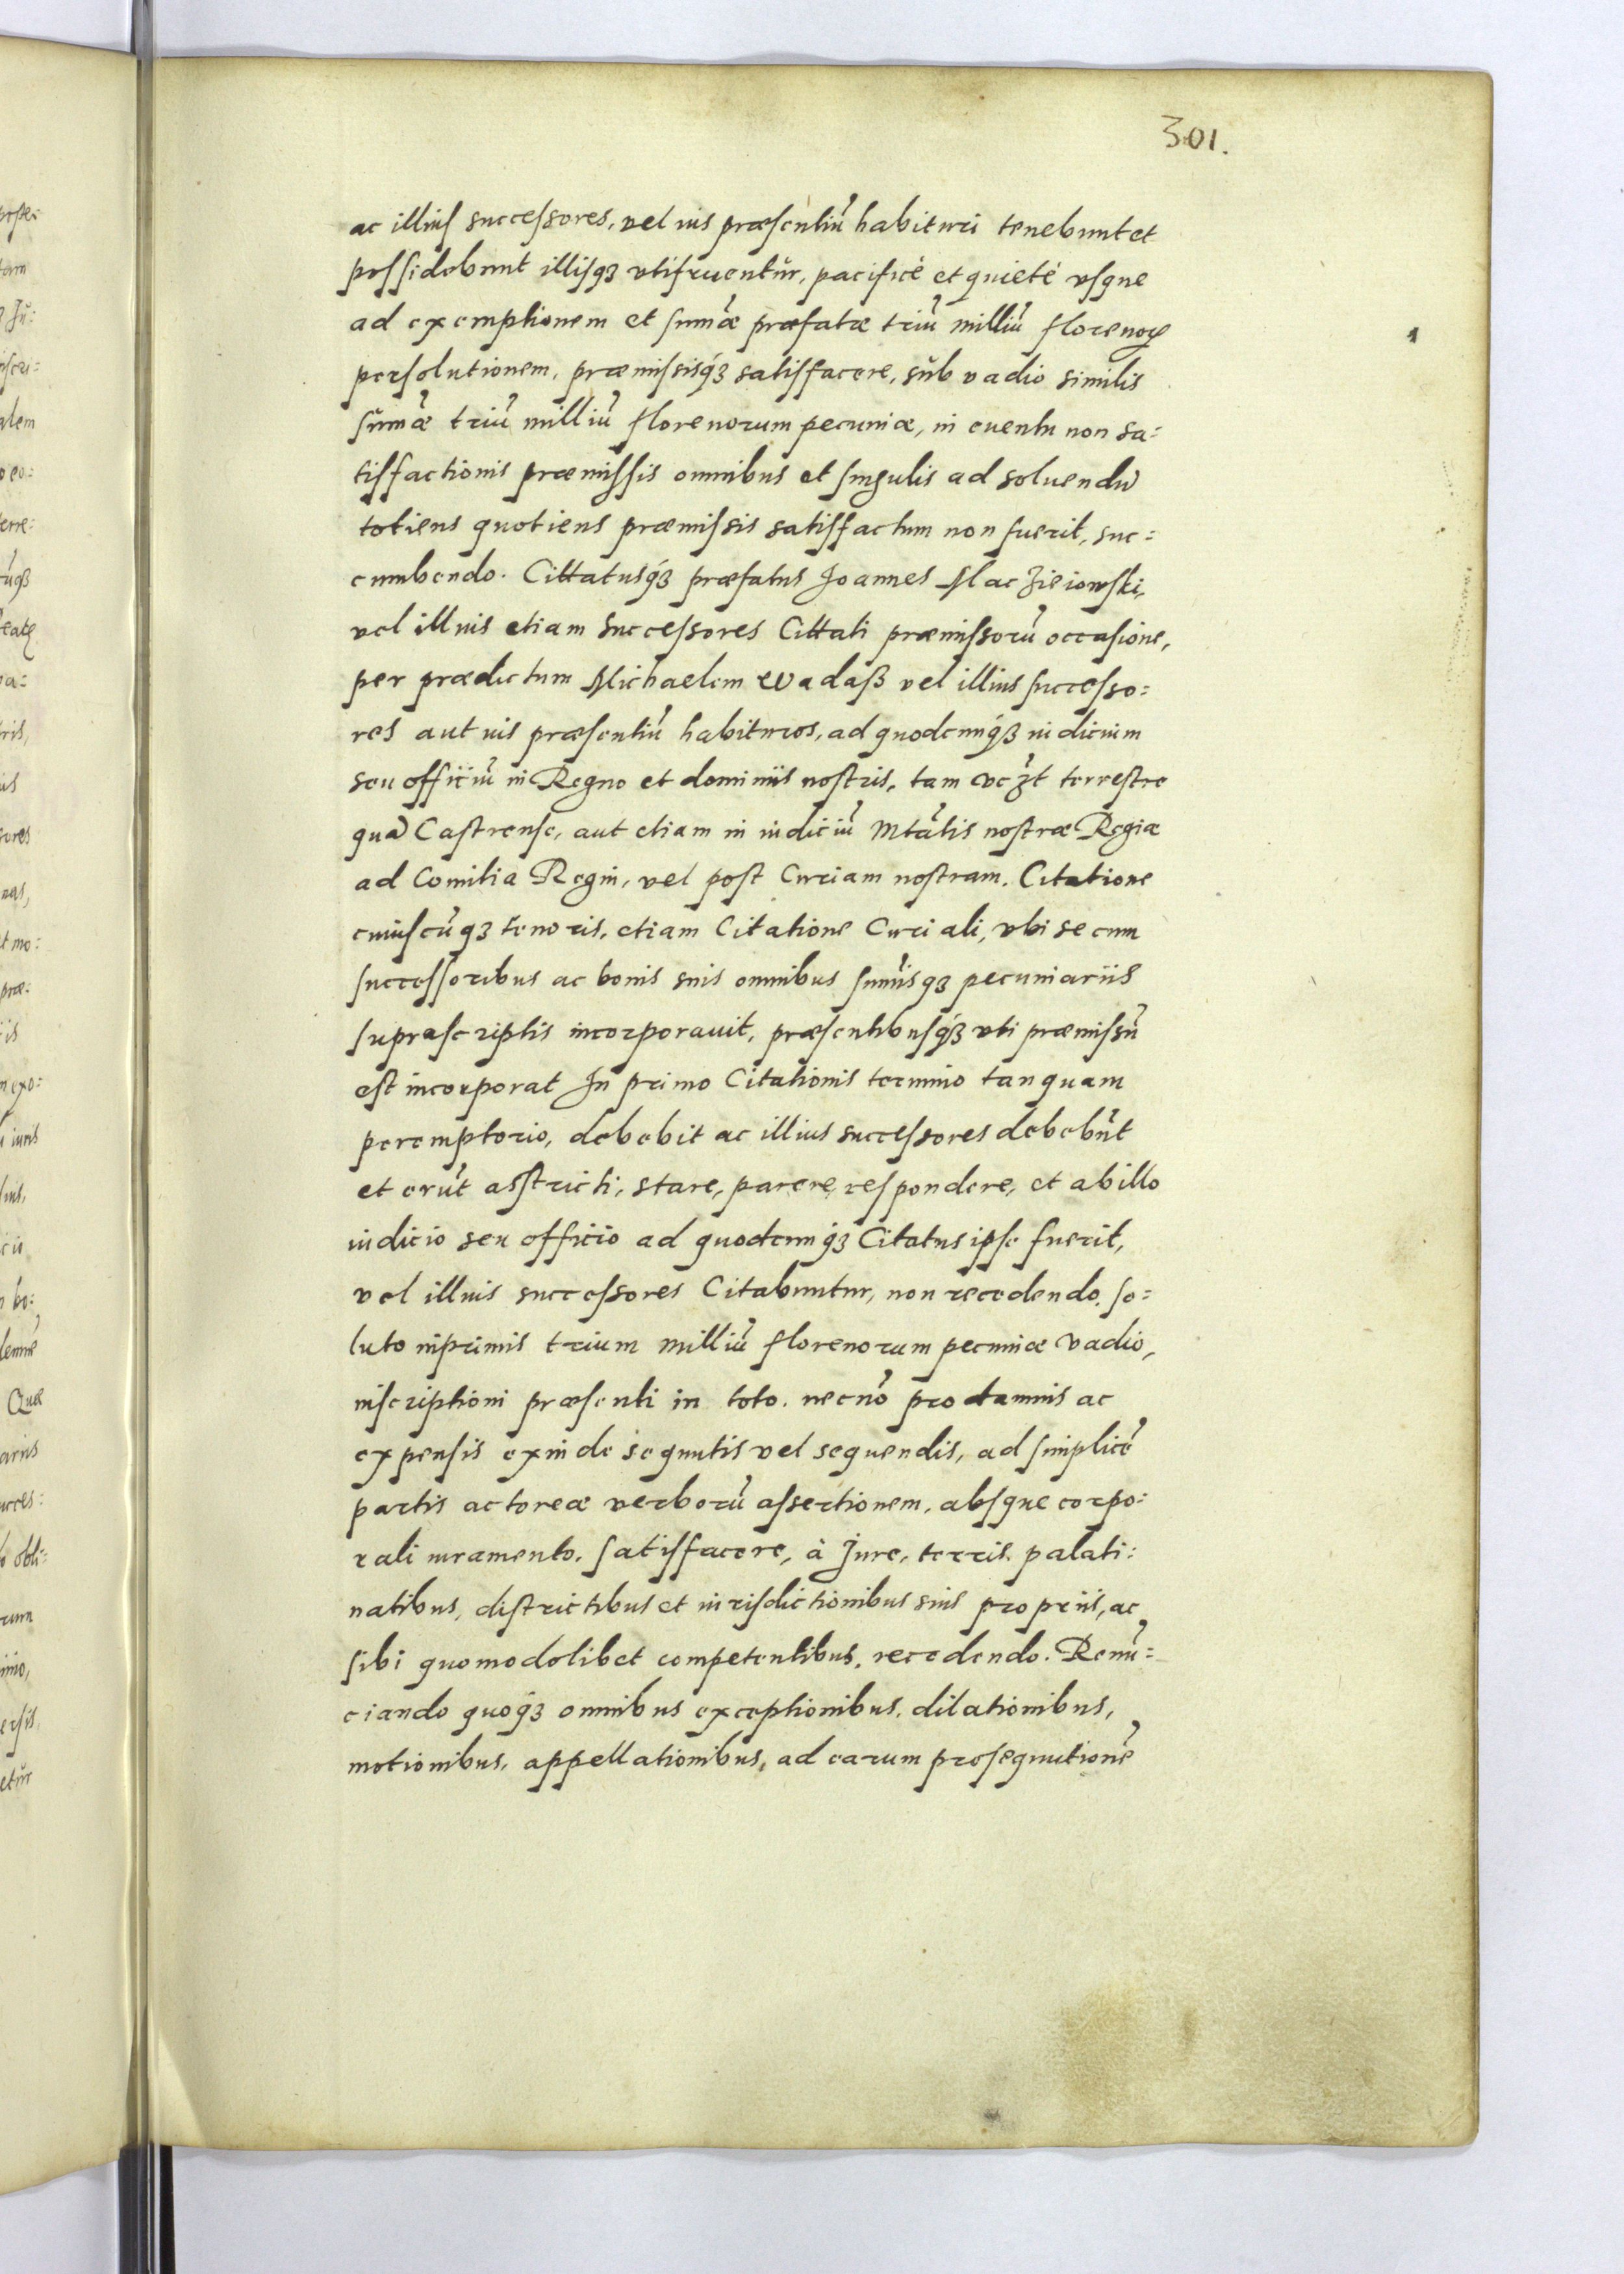 301.
ac illius successores, vel ius præsentiũ habituri tenebunt et
possidebunt illisqꝫ vtifruentur, pacificè et quietè vsque
ad exemptionem et sum̃æ præfatæ triũ milliũ florenoꝝ
persolutionem, præmissisqꝫ satisfacere, sub vadio similis
sum̃æ triũ milliũ florenorum pecuniæ, in euentu non sa:
tisfactionis præmissis omnibus et singulis ad soluendũ
totiens quotiens præmissis satisfactum non fuerit, suc:
cumbendo. Cittatusqꝫ præfatus Joannes Macʒieiowski,
vel illius etiam successores Cittati præmissorũ occasione,
per prædictum Michaelem Wadasß vel illius successo:
res aut ius præsentiũ habituros, ad quodcunqꝫ iudicium
seu officiũ in Regno et dominiis nostris, tam vcʒt terrestre
quã Castrense, aut etiam in iudiciũ Mtãtis nostræ Regiæ
ad Comitia Regni, vel post Curiam nostram. Citatione
cuiuscũqꝫ tenoris, etiam Citatione Curiali, vbi se cum
successoribus ac bonis suis omnibus sum̃isqꝫ pecuniariis
suprascriptis incorporauit, præsentibusqꝫ vti præmissũ
est incorporat In primo Citationis termino tanquam
peremptorio, debebit ac illius successores debebũt
et erũt asstricti, stare, parere, respondere, et ab illo
iudicio seu officio ad quodcunqꝫ Citatus ipse fuerit,
vel illius successores Citabuntur, non recedendo, so:
luto inprimis trium milliũ florenorum pecuniæ vadio,
inscriptioni præsenti in toto, necnõ pro damnis ac
expensis exinde sequutis vel sequendis, ad simplicẽ
partis actoreæ verborũ assertionem, absque corpo:
rali iuramento, satisfacere, à Jure, terris, palati:
natibus, districtibus et iurisdictionibus suis propriis, ac
sibi quomodolibet competentibus, recedendo. Renũ:
ciando quoqꝫ omnibus exceptionibus, dilationibus,
motionibus, appellationibus, ad earum prosequutionẽ